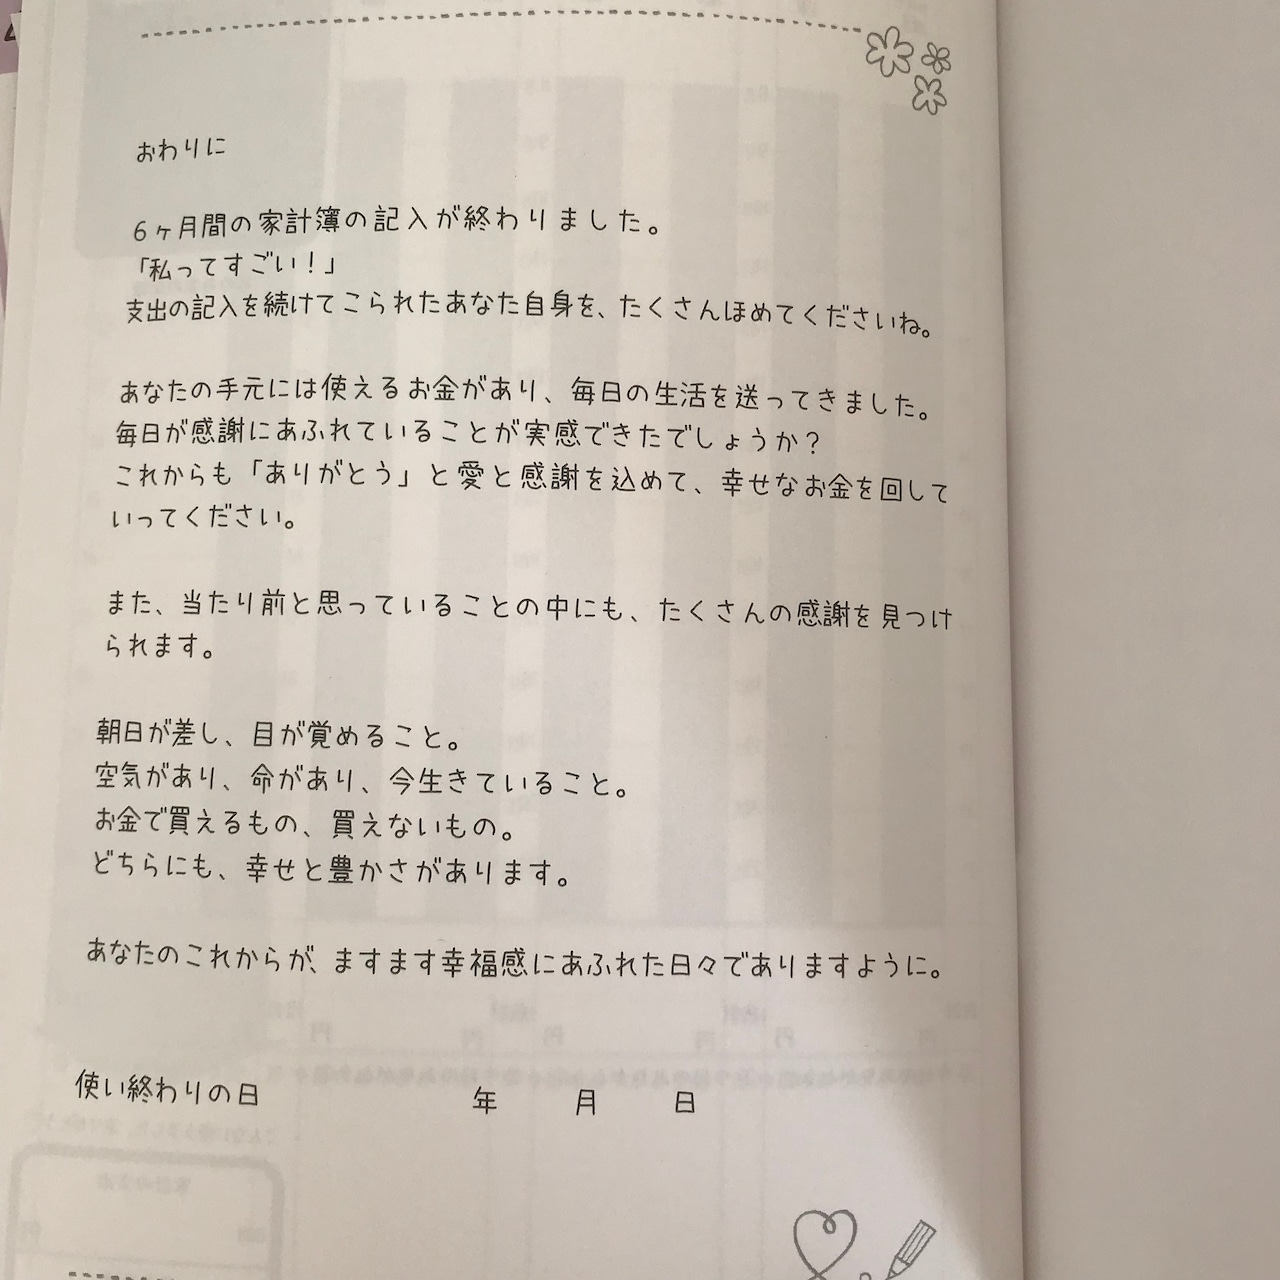 おわりに
6ヶ月間の家計簿の記入が終わりました。
「私ってすごい！」
支出の記入を続けてこられたあなた自身を、たくさんほめてくださいね。
あなたの手元には使えるお金があり、毎日の生活を送ってきました。
毎日が感謝にあふれていることが実感できたでしょうか？
これからも「ありがとう」と愛と感謝を込めて、幸せなお金を回して
いってください。
また、当たり前と思っていることの中にも、たくさんの感謝を見つけ
られます。
朝日が差し、目が覚めること。
空気があり、命があり、今生きていること。
お金で買えるもの、買えないもの。
どちらにも、幸せと豊かさがあります。
あなたのこれからが、ますます幸福感にあふれた日々でありますように。
使い終わりの日 年 月 日